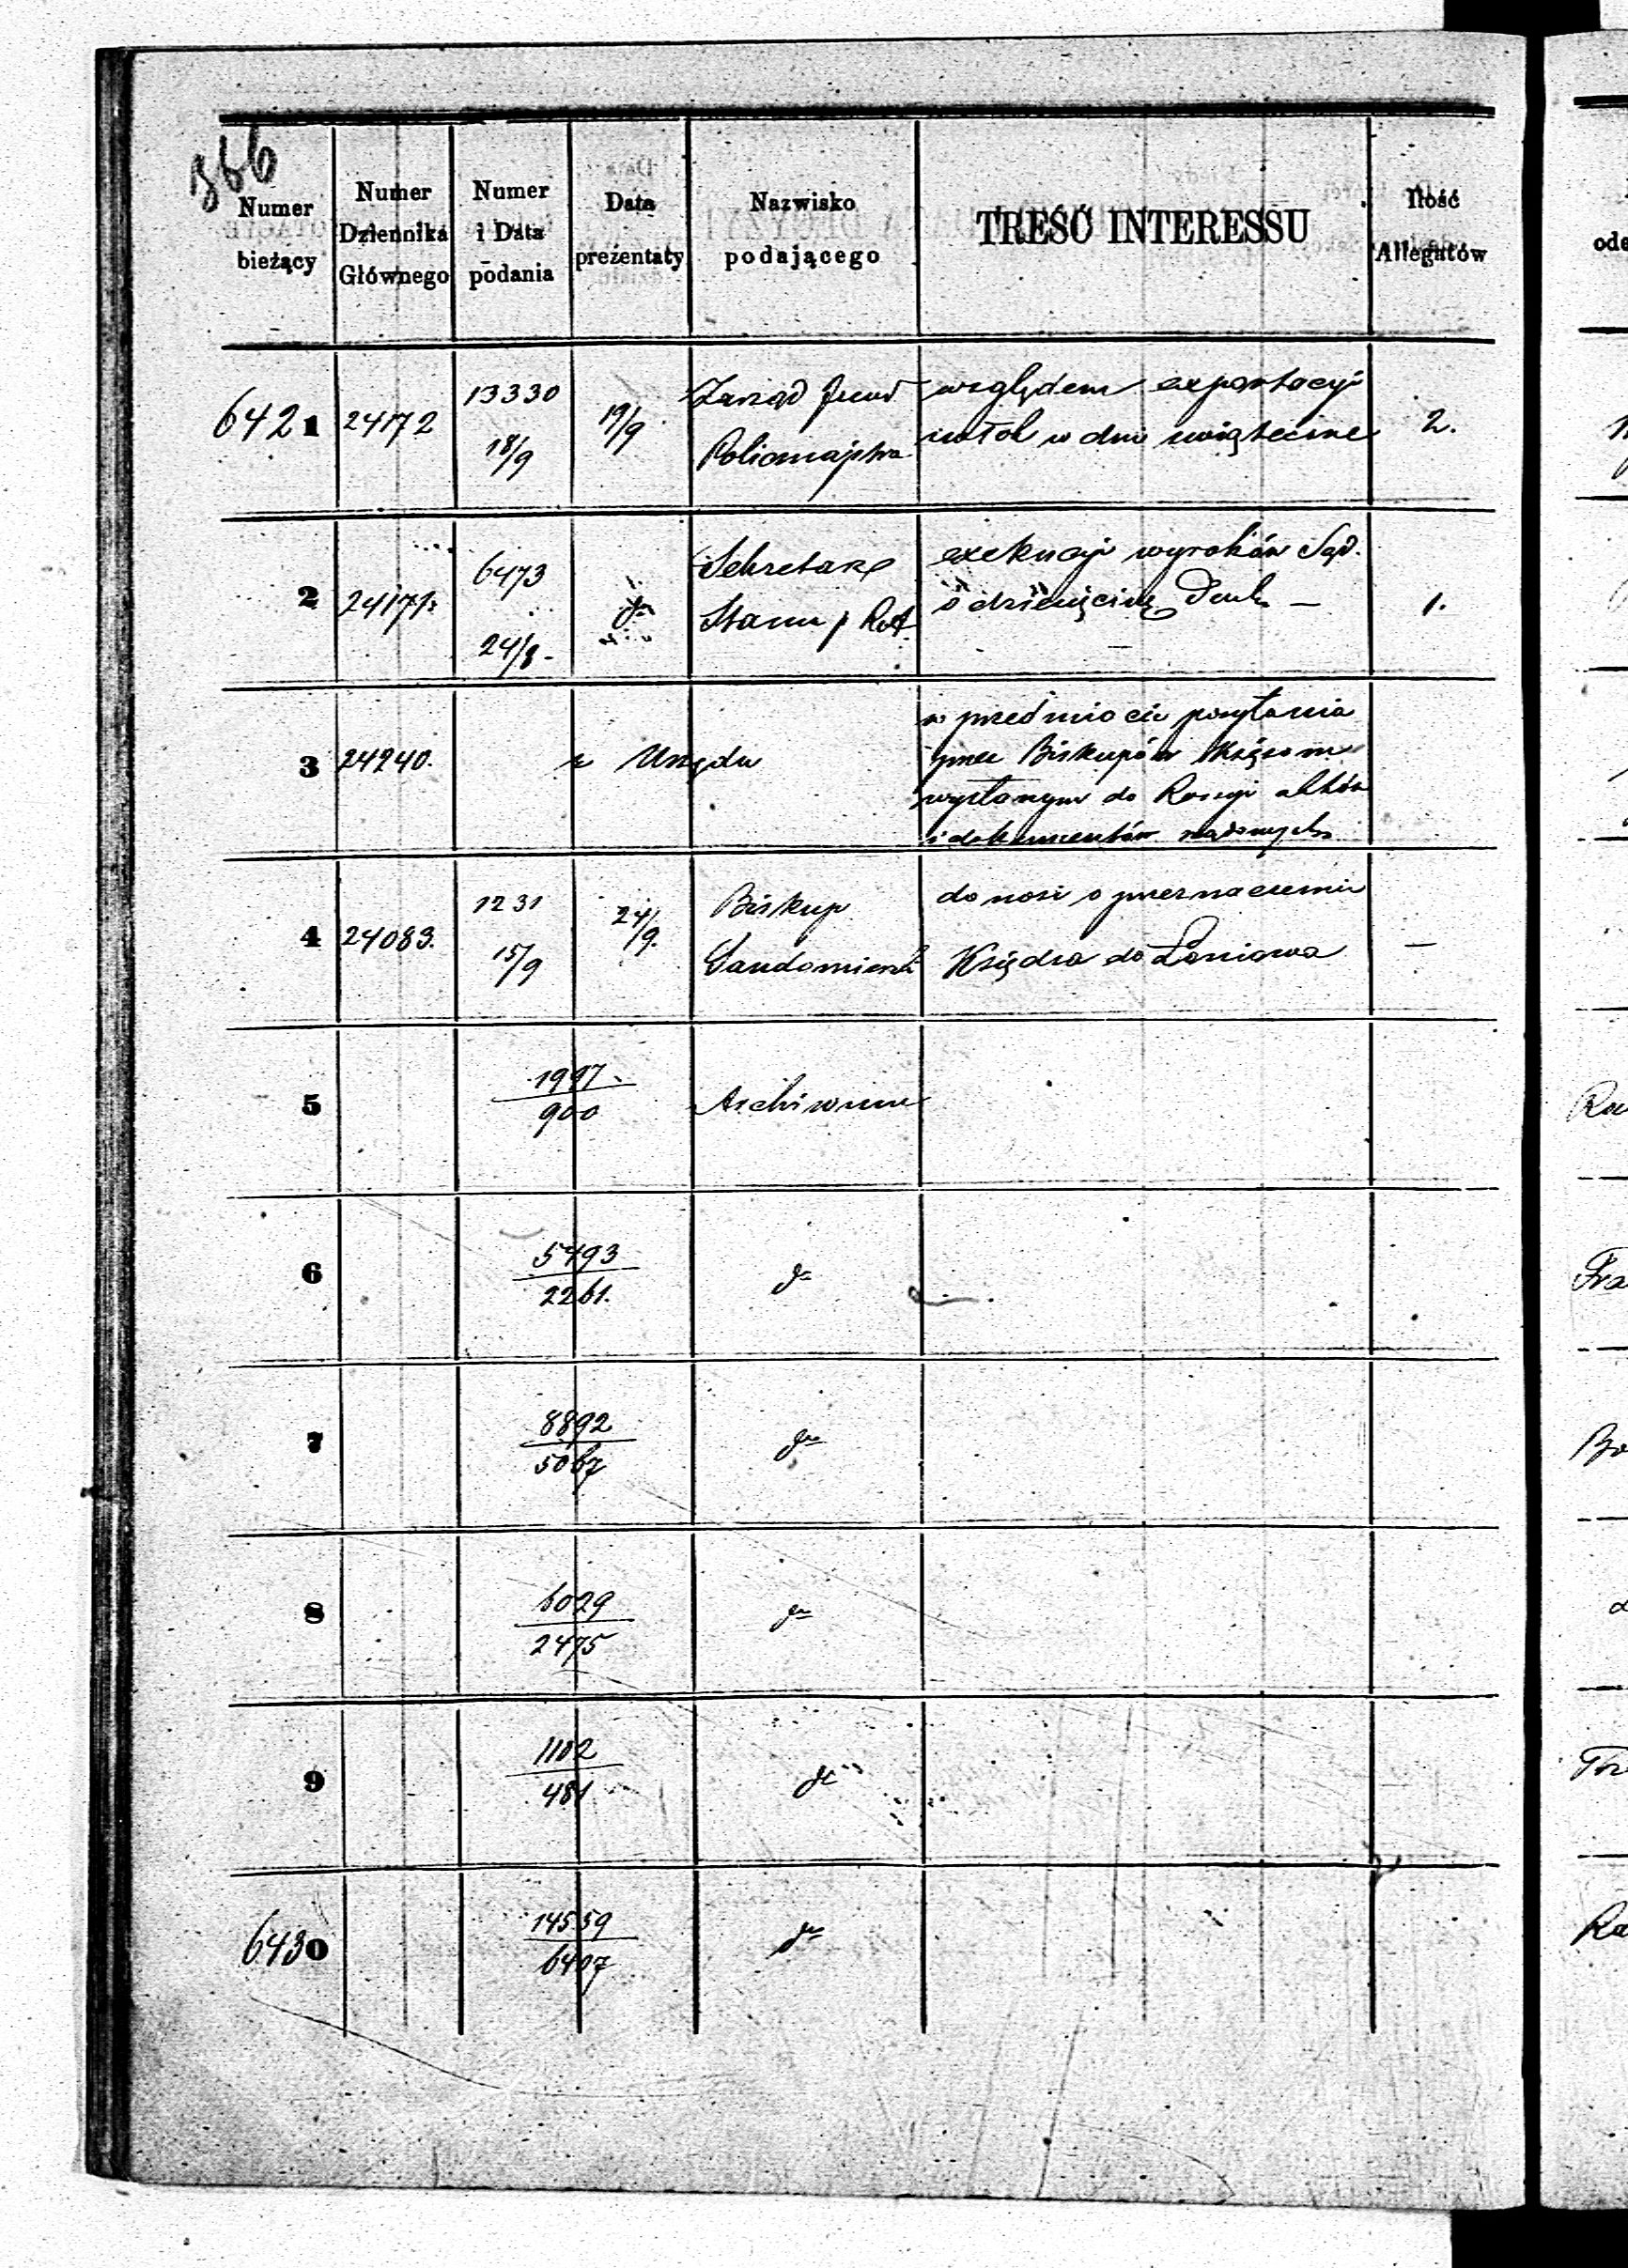 366
Numer bieżący
Numer Dziennika Głównego
Numer i Data podania
Data prezentaty
Nazwisko podającego
TREŚĆ INTERESSU
Ilość Allegatów
6421 24172 13330 18/9 19/9
Zarząd
Policmajstra
względem exportacyi
zwłok w dnie świąteczne
2.
2 24171. 6473 24/8 do
Sekretarz
Stanu
exekucyi wyroków Sąd.
o dziesięcinę
1.
3 24240. z Urzędu
w przedmiocie posyłania
przez Biskupów Księżom
wysłanym do Rossyi aktów
i dokumentów
4 24083. 1231 15/9 24/9.
Biskup
Sandomierski
donosi o przeznaczeniu
Księdza do
—
5 1997 Archiwum
900
6 5493 do
2261.
7 8892 do
5067
8 6029 do
2475
9 1102 do
481
6430 14559 do
6407